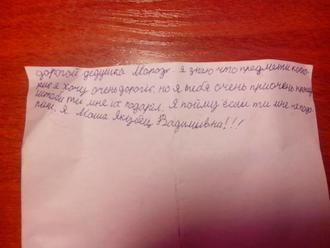 дорогой дедушка Мороз. Я знаю что предметы кото
рые я хочу очень дорогие, но я тебя очень приочень прошу
штобы ти мне их подарел. Я пойму если ти мне не подо
риш. Я Маша Вадимивна!!!